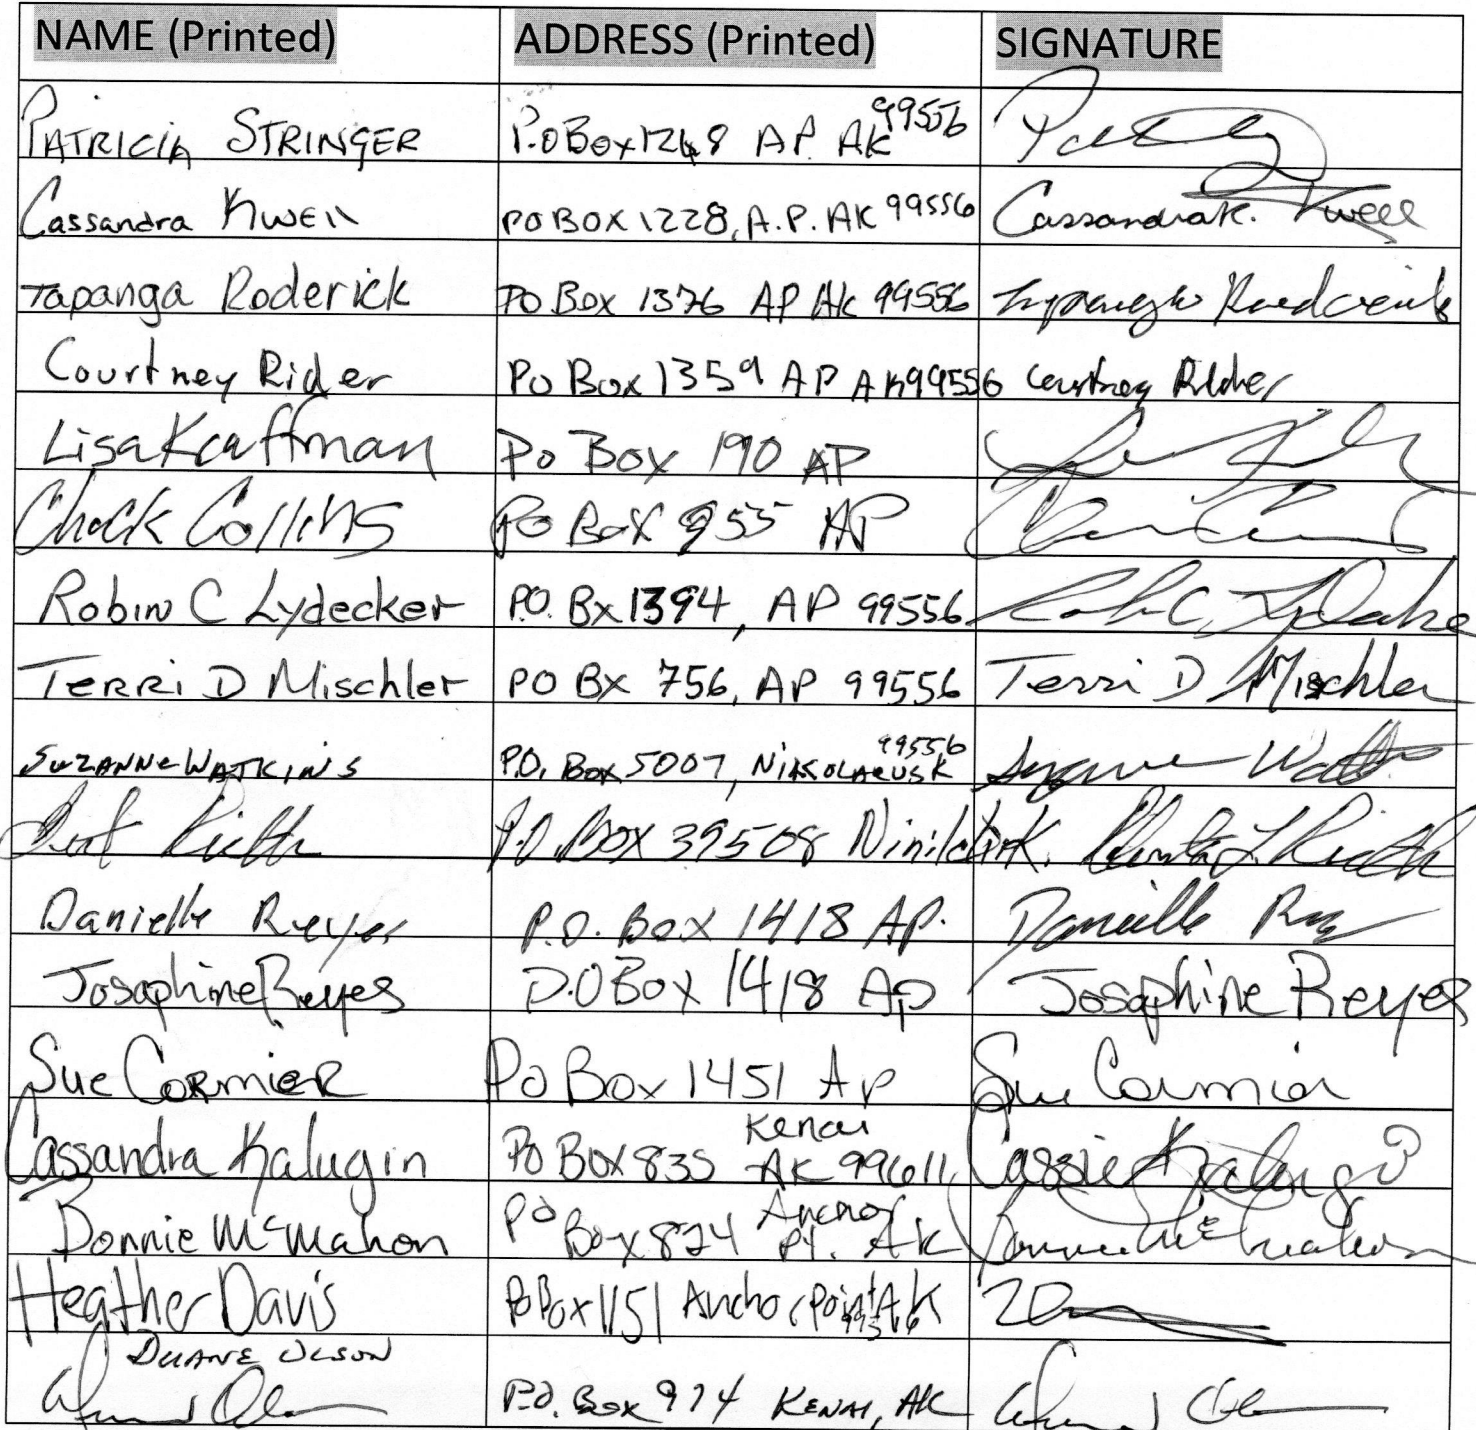 NAME (Printed) ADDRESS (Printed) SIGNATURE
PATRICIA STRINGER P.O Box 1248 AP. AK 99556
Cassandra Kweil PO BOX 1228, A.P. AK 99556 Cassandra K. Kweil
Tapanga Roderick PO Box 1376 AP AK 99556 Tapanga Roderick
Courtney Rider Po Box 1359 AP AK 99556 Courtney Rider
Lisa Kraffman Po Box 190 AP
Chuck Collins PO Box 955 AP
Robin C Lydecker P.O. Bx 1394, AP 99556 Robin C. Lydecker
TERRi D Mischler PO BX 756, AP 99556 Terri D Mischler
SUZANNE WATKINS P.O. Box 5007, NIKOLAEVSK 99556 Suzanne
P.O. Box 39508 Ninilchik.
Danielle Reyes P.O. Box 1418 AP. Danielle
Josaphine Reyes P.O Box 1418 AP Josaphine Reyes
Sue CORMIER Po Box 1451 AP Sue Cormier
Cassandra Kalugin Po Box 835 Kenai AK 99611 Cassie Kalugin
Bonnie McMahon PO Box 874 Anchor Pt. AK Bonnie McMahon
Heather Davis Po Box 1151 Anchor Point AK
DUANE OLSON
P.O. Box 974 KENAI, AK